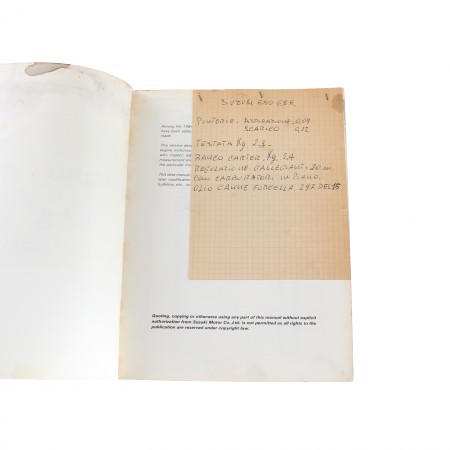 SUZUKI 250 GSX
PUNTERIE: ASPIRAZIONE 0,09
SCARICO 0,12
TESTATA Kg. 2,3
BANCO CARTER, Kg. 2,4
REGOLAZIONE GALLEGIANTI. 20 m.m
CON CARBURATORI IN PIANO.
OLIO CANNE FORCELLA. 297 DEL 15
Among the 198
have been edited
made.
The service per
engine technical
measurement and
the particular
This data manual
spec modification
bulletins, etc.
Quoting, copying or otherwise using any part of this manual without explicit
authorization from Suzuki Motor Co., Ltd. is not permitted as all rights to the
publication are reserved under copyright law.